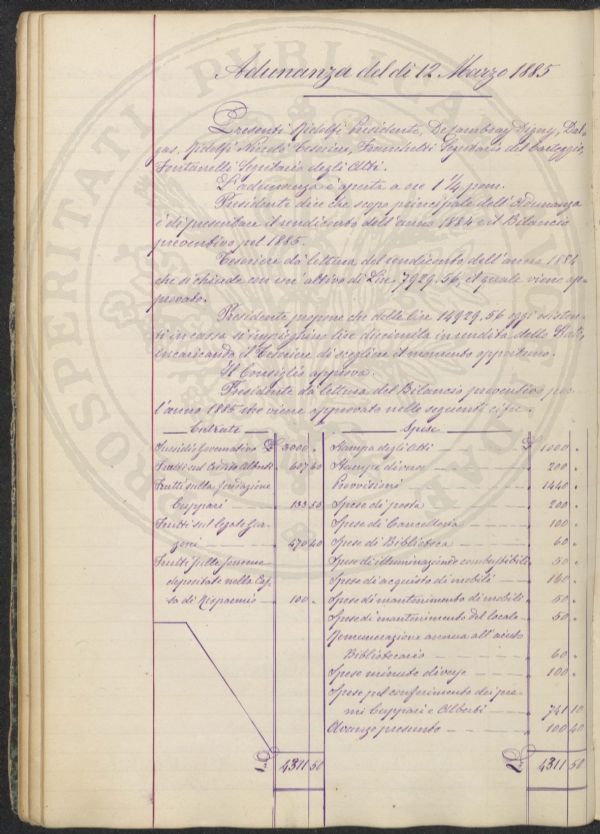 Adunanza del dì 12 Marzo 1885
Presenti Ridolfi Presidente, De Cambray Digny, Dal-
gas, Ridolfi Niccolò Tesoriere, Franchetti Segretario del Carteggio,
Fontanelli Segretario degli Atti.
L'adunanza è aperta a ore 1 1/4 pom.
Presidente dice che scopo principale dell'Adunanza
è di presentare il rendiconto dell'anno 1884 e il Bilancio
preventivo pel 1885.
Tesoriere dà lettura del rendiconto dell'anno 1884
che si chiude con un'attivo di Lire 7929.56, il quale viene ap-
provato.
Presidente propone che delle lire 14929.56 oggi esisten-
ti in cassa si impieghino lire diecimila in rendita dello Stato,
incaricando il Tesoriere di scegliere il momento opportuno.
Il Consiglio approva.
Presidente dà lettura del Bilancio preventivo per
l'anno 1885 che viene approvato nelle seguenti cifre.
Entrate
Sussidio Governativo £ 3000 "
Frutti sul Lascito Alberti 607 60
Frutti sulla fondazione
Cuppari 133 50
Frutti sul legato
470 40
Frutti sulle somme
depositate nella Cas-
sa di Risparmio 100 "
£ 4311 50
Spese
Stampa degli Atti £ 1000 "
Stampe diverse 200 "
Provvisioni 1440 "
Spese di posta 200 "
Spese di Cancelleria 100 "
Spese di Biblioteca 60 "
Spese di illuminazione e combustibili 50 "
Spese di acquisto di mobili 160 "
Spese di mantenimento di mobili 50 "
Spese di mantenimento del locale 50 "
Remunerazione annua all'aiuto
Bibliotecario 60 "
Spese minute diverse 100 "
Spese pel conferimento dei pre-
mi Cuppari e Alberti 741 10
Avanzo presunto 100 40
£ 4311 50
PROSPERITATI PUBLICAE AUGENDAE